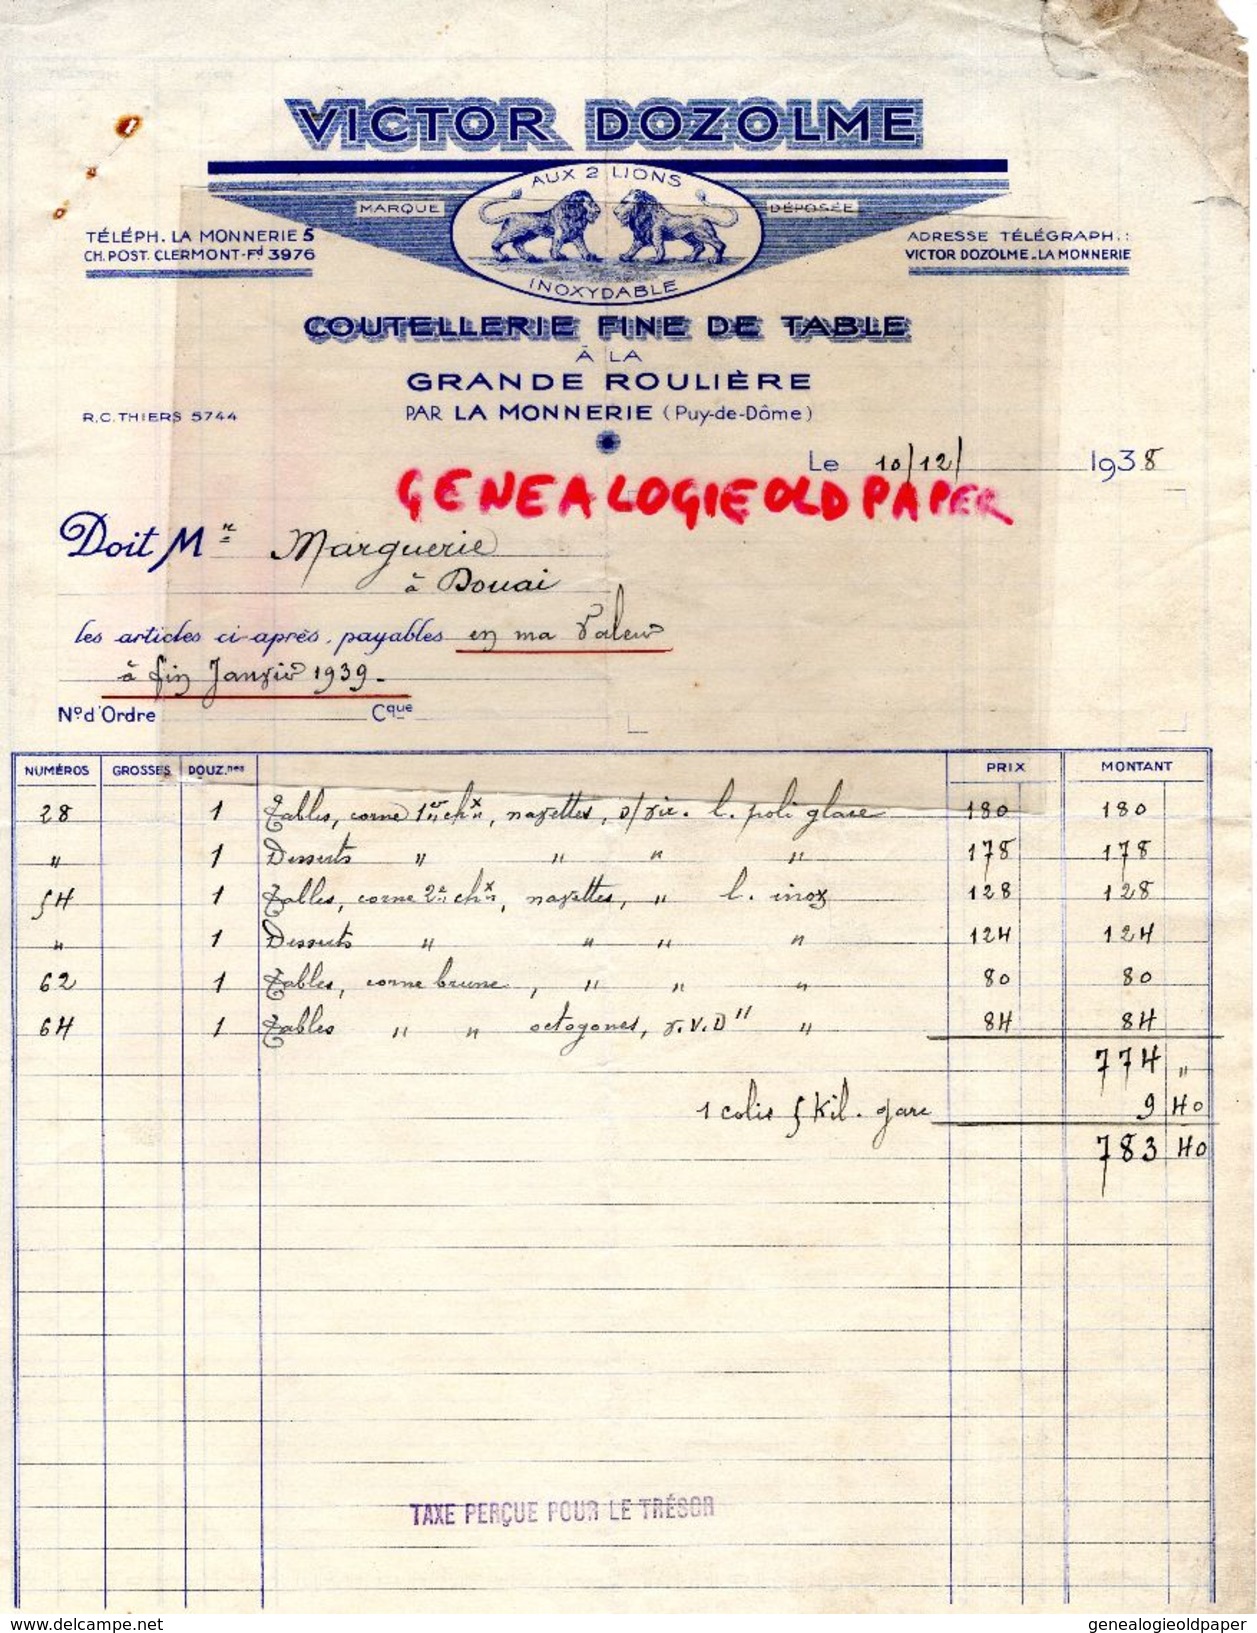 VICTOR DOZOLME
AUX 2 LIONS
MARQUE DÉPOSÉE
INOXYDABLE
TÉLÉPH. LA MONNERIE 5
CH. POST. CLERMONT-Fd 3976
ADRESSE TÉLÉGRAPH. :
VICTOR DOZOLME_LA MONNERIE
COUTELLERIE FINE DE TABLE
À LA
GRANDE ROULIÈRE
R.C. THIERS 5744
PAR LA MONNERIE (Puy-de-Dôme)
Le 10/12/ 1938
GENEALOGIEOLDPAPER
Doit Mr Marguerie
à Douai
les articles ci-après, payables en ma Valeur
à fin Janvier 1939 -
No d'Ordre Cque
NUMÉROS GROSSES DOUZ.nes PRIX MONTANT
28 1 Tables, corne 1er chx, navettes, d/vir. l. poli glace 180 180
" 1 Desserts " " " " 178 178
54 1 Tables, corne 2e chx, navettes, " l. inox 128 128
" 1 Desserts " " " " 124 124
62 1 Tables, corne brune, " " " 80 80
64 1 Tables " " octogones, v.V.D" " 84 84
774 "
1 colis 5 Kil. gare 9 40
783 40
TAXE PERÇUE POUR LE TRÉSOR
www.delcampe.net genealogieoldpaper